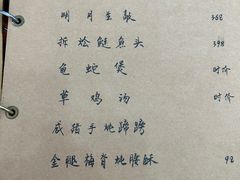 明月生敲 368
拆烩鲢鱼头 398
龟蛇煲 时价
草鸡汤 时价
咸猪手炖蹄髈
金腿梅脊炖腰酥 98